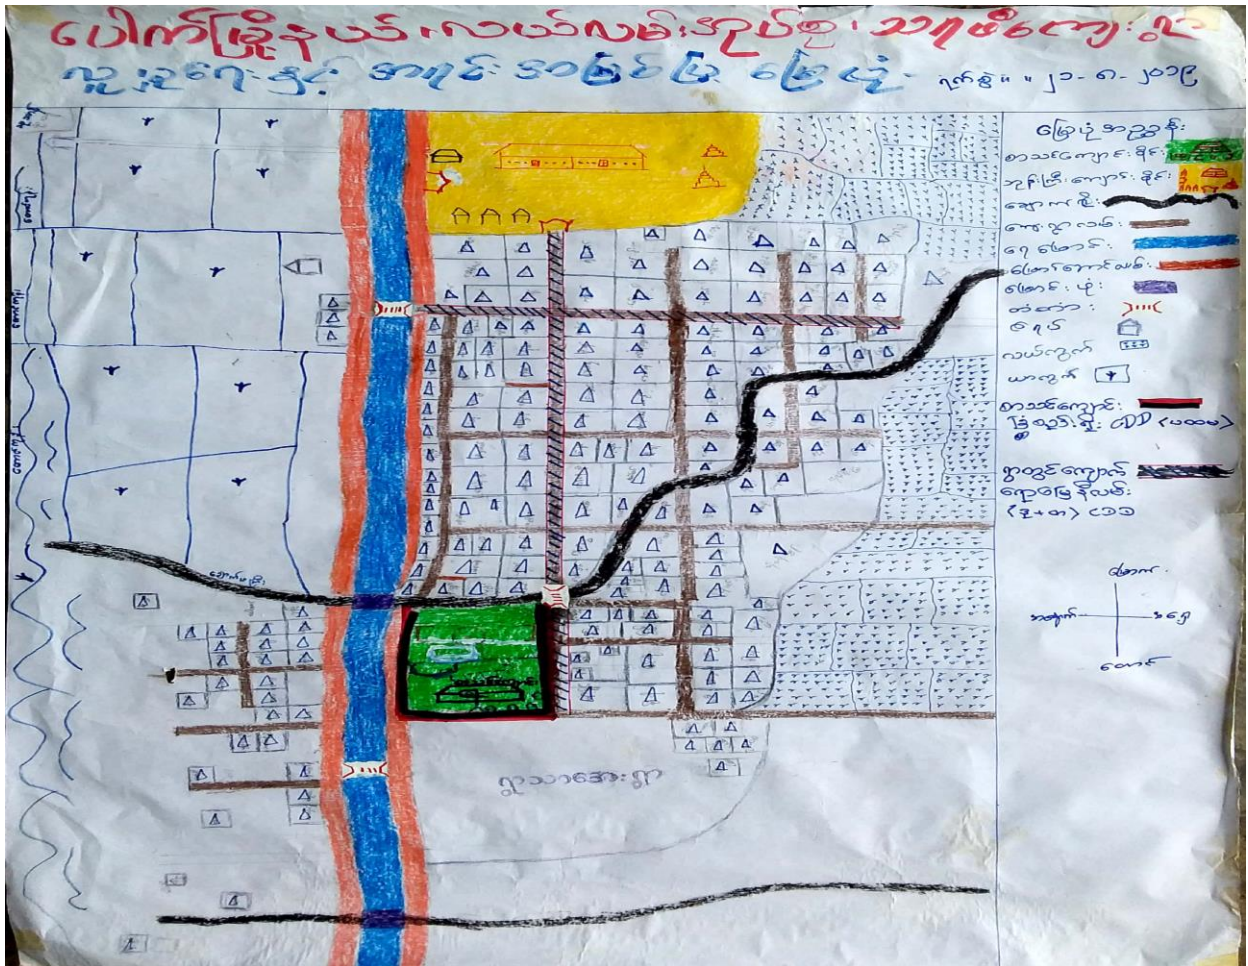 ပေါက်မြို့နယ်၊ လယ်လမ်းအုပ်စု၊ သရဖီကျေးရွာ
လူမှုရေးနှင့် အရင်းအမြစ်ပြ မြေပုံ
ရက်စွဲ။ ။ ၂၁-၈-၂၀၁၉
မြေပုံအညွှန်း
စာသင်ကျောင်းဝိုင်း
ဘုန်းကြီးကျောင်းဝိုင်း
ချောက်ရိုး
ကျေးရွာလမ်း
ရေမြောင်း
မြောင်းဘောင်လမ်း
မြောင်းပုံး
တံတား
ရေပ်
လယ်ကွက်
ယာကွက်
စာသင်ကျောင်း
ခြံစည်းရိုး CDD (ပထမ)
ရွာတွင်းကျောက်
ချောမြေနီလမ်း
မြောက်
အနောက်
အရှေ့
တောင်